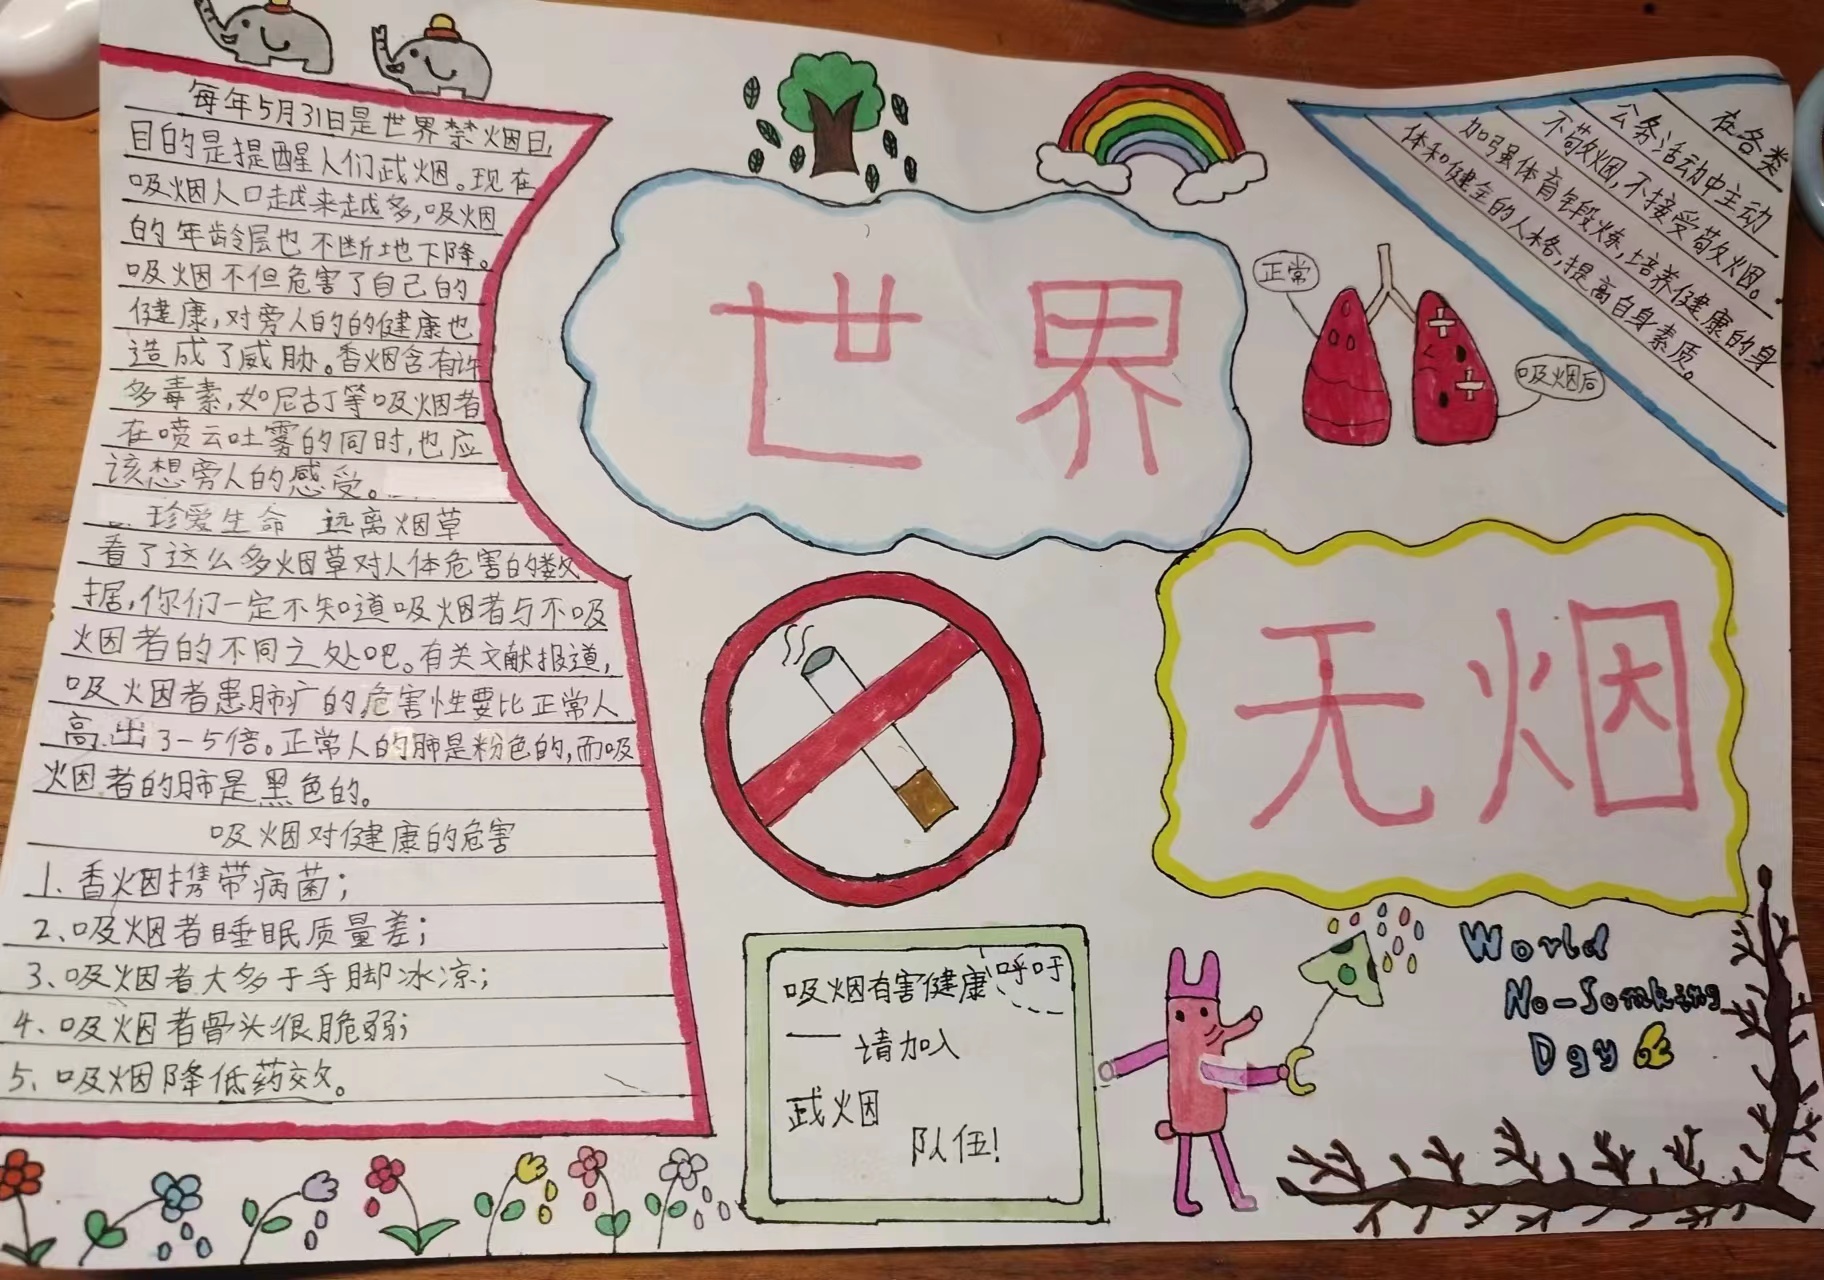 每年5月31日是世界禁烟日,
目的是提醒人们戒烟。现在
吸烟人口越来越多,吸烟
的年龄层也不断地下降。
吸烟不但危害了自己的
健康,对旁人的的健康也
造成了威胁。香烟含有许
多毒素,如尼古丁等吸烟者
在喷云吐雾的同时,也应
该想旁人的感受。
珍爱生命 远离烟草
看了这么多烟草对人体危害的数
据,你们一定不知道吸烟者与不吸
烟者的不同之处吧。有关文献报道,
吸烟者患肺疒的危害性要比正常人
高出3-5倍。正常人的肺是粉色的,而吸
烟者的肺是黑色的。
吸烟对健康的危害
1、香烟携带病菌;
2、吸烟者睡眠质量差;
3、吸烟者大多于手脚冰凉;
4、吸烟者骨头很脆弱;
5、吸烟降低药效。
世界
无烟
正常
吸烟后
在各类
公务活动中主动
不敬烟,不接受敬烟。
加强体育锻炼,培养健康的身
体和健全的人格,提高自身素质。
吸烟有害健康
呼吁
——请加入
戒烟
队伍!
World
No-Somking
Dgy